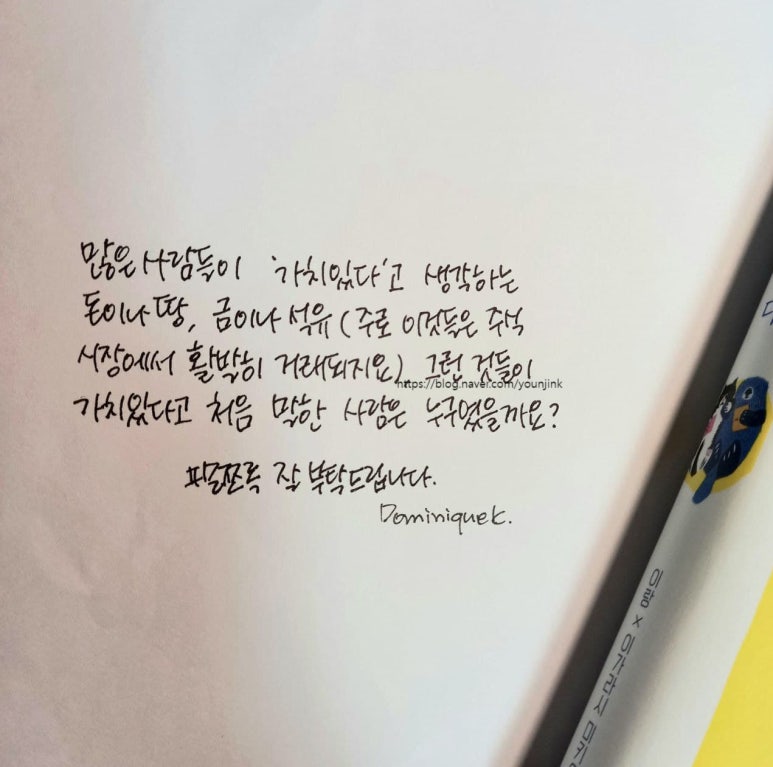 많은 사람들이 '가치있다'고 생각하는
돈이나 땅, 금이나 석유 (주로 이것들은 주식
시장에서 활발히 거래되지요). 그런 것들이
https://blog.naver.com/younjink
가치있다고 처음 말한 사람은 누구였을까요?
잘 부탁드립니다.
Dominique K.